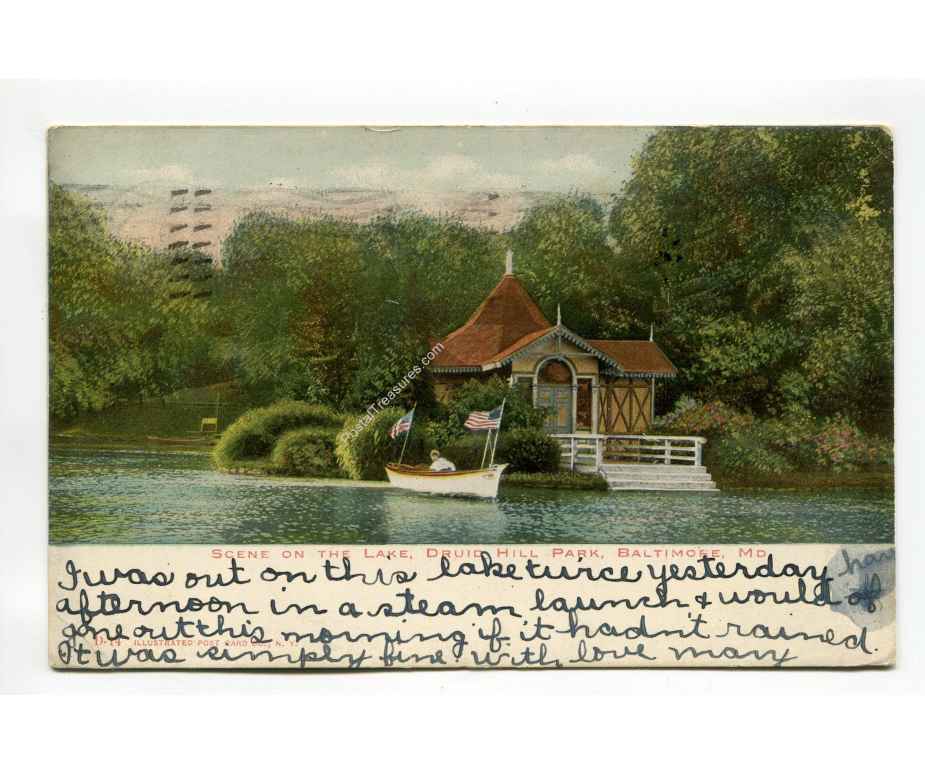 PostalTreasures.com
SCENE ON THE LAKE, DRUID HILL PARK, BALTIMORE, MD.
I was out on this lake twice yesterday
afternoon in a steam launch & would have
gone out this morning if it hadn't rained.
D. 14 ILLUSTRATED POST CARD CO., N. Y.
It was simply fine. With love Mary